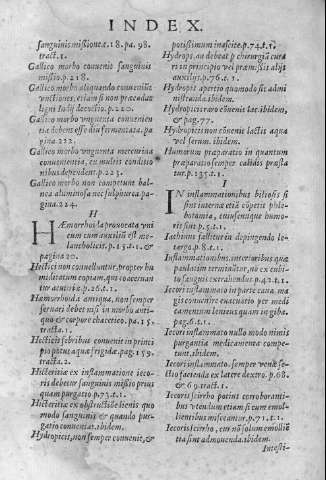 INDEX.
sanguinis missione. 18. pa. 98.
tract. 1.
Gallico morbo convenit sanguinis
missio. p. 218.
Gallico morbo aliquando conveniunt
unctiones, etiam si non præcedat
ligni Indi decoctio. p. 220.
Gallico morbo unguenta convenien
tia debent esse diu fermentata. pa
gina. 222.
Gallico morbo unguenta
convenientia, ex multis conditio
nibus dependent. p. 223.
Gallico morbo non competunt bal-
nea aluminosa nec sulphurea. pa
gina. 224.
H
HÆmorrhois provocata uni
cum auxilium est me-
lancholicis. p. 151. t. 1. &
pagina 20.
Hectici non convalescunt, propter hu
miditatum copiam, quæ coacervan
tur
Hæmorrhoida antiqua, non semper
servari debet nisi in morbo anti-
quo & corpore chacetico. pa. 15.
tracta. 1.
Hecticis febribus convenit in princi
pio potus aquæ frigidæ. pag. 159.
tracta. 2.
Hicteritiæ ex inflammatione ieco-
ris debetur sanguinis missio prius
quam purgatio p. 73. t. 1.
Hicteritiæ ex obstructione ienoris quo
modo sanguinis & quando pur-
gatio conveniat. ibidem.
Hydropicis, non semper convenit, &
potissimum in ascite. p. 74. t. 1.
Hydrops, an debeat per chirurgiam cura
ri in principio vel præmissis aliis
auxiliis. p. 76. t. 1.
Hydropis apertio quomodo sit admi
nistranda. ibidem.
Hydropicis raro convenit lac. ibidem,
& pag. 77.
Hydropicis non convenit lactis aqua
vel serum. ibidem.
Humorum præparatio in quantum
præparatio semper calidis præsta
tur. p. 135. t. 1.
I
IN inflammationibus biliosis si
sint internæ etiam competit phle-
botomia, cuiuscunque humo-
ris sint. p. 5. t. 1.
Iachinus fallitur in depingendo le-
targo. p. 8. t. 1.
Inflammationibus, interioribus quæ
paulatim terminatur, an ex cubi-
to sanguis extrahendus. p. 42. t. 1.
Iecoris inflammato in parte cava, ma
gis convenit evacuatio per medi
camentum leniens quàm in giba.
pag. 6. t. 1.
Iecori inflammato nullo modo minus
purgantia medicamenta compe-
tunt. ibidem.
Iecori inflammato, semper venæ se-
ctio facienda ex latere dextro. p. 68.
& 69. tract. 1.
Iecoris scirrho potius corroboranti-
bus utendum etiam si cum emol-
lientibus misceantur. p. 70. t. 1.
Iecoris scirrho, an non solum emollien
tia sint admovenda. ibidem.
Intesti-